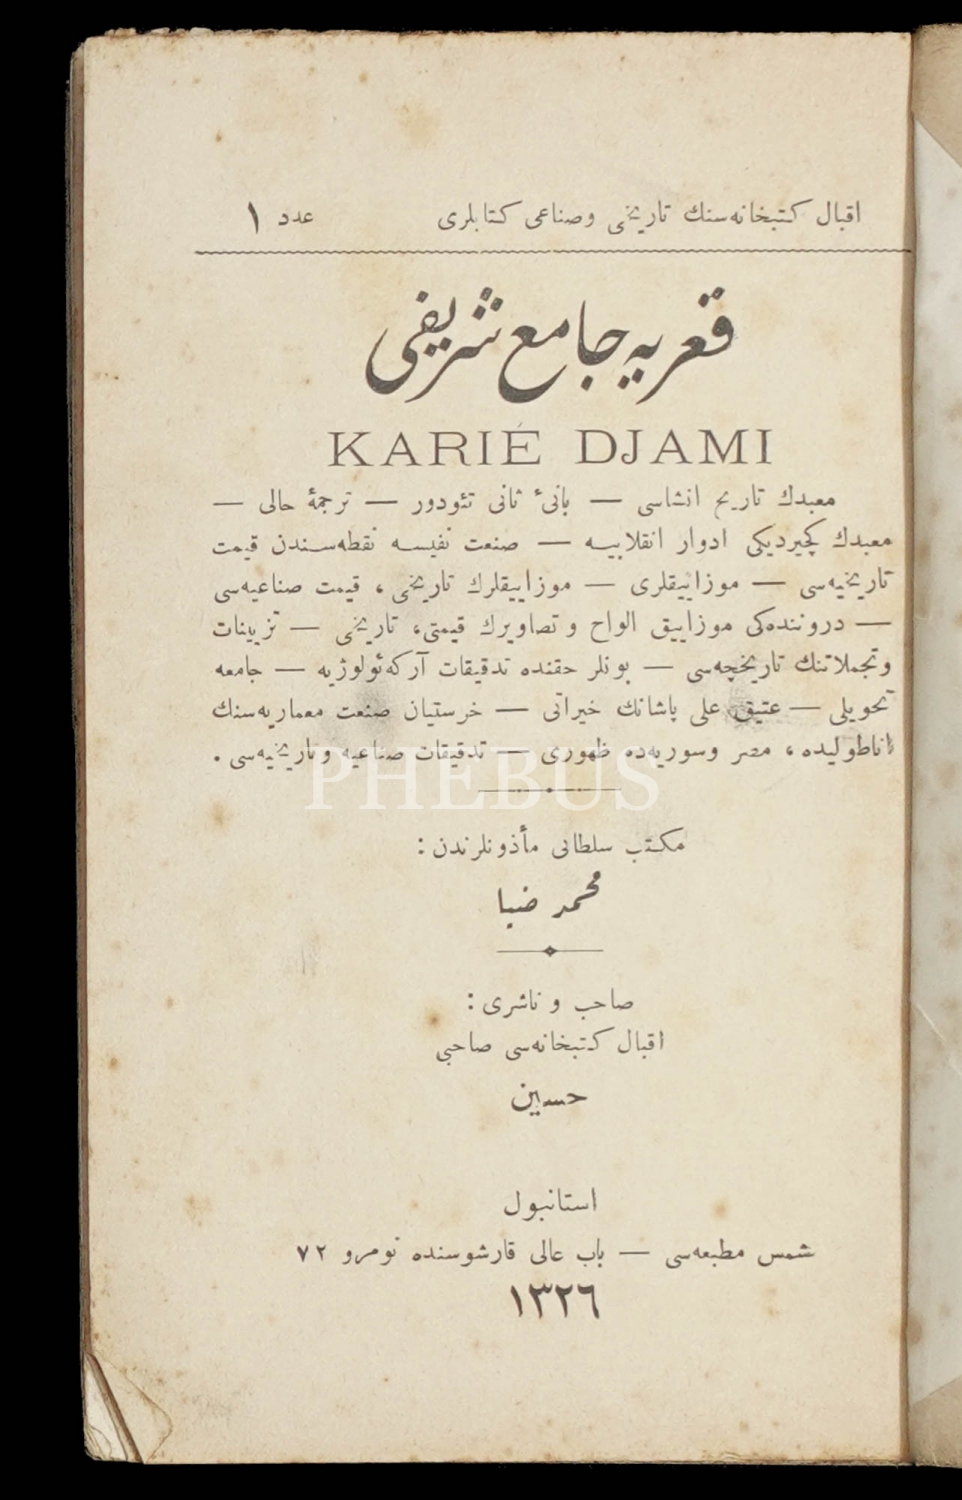 اقبال كتبخانه‌سنك تاریخی وصناعی كتابلری عدد ۱
قعریه جامع شریفی
KARIÉ DJAMI
معبدك تاریخ انشاسی — بانیٔ ثانی تئودور — ترجمۀ حالی —
معبدك كچیردیكی ادوار انقلابیه — صنعت نفیسه نقطه‌سندن قیمت
تاریخیه‌سی — موزاییقلری — موزاییقلرك تاریخی ، قیمت صناعیه‌سی
— دروننده‌كی موزاییق الواح و تصاویرك قیمتی، تاریخی — تزیینات
وتجملاتنك تاریخچه‌سی — بونلر حقنده تدقیقات آركه‌ئولوژیه — جامعه
تحویلی — عتیق علی پاشانك خیراتی — خرستیان صنعت معماریه‌سنك
آناطولیده ، مصر وسوریه‌ده ظهوری — تدقیقات صناعیه وتاریخیه‌سی .
PHEBUS
مكتب سلطانی مأذونلرندن :
محمد ضیا
صاحب و ناشری :
اقبال كتبخانه‌سی صاحبی
حسین
استانبول
شمس مطبعه‌سی — باب عالی قارشوسنده نومرو ۷۲
۱۳۲٦